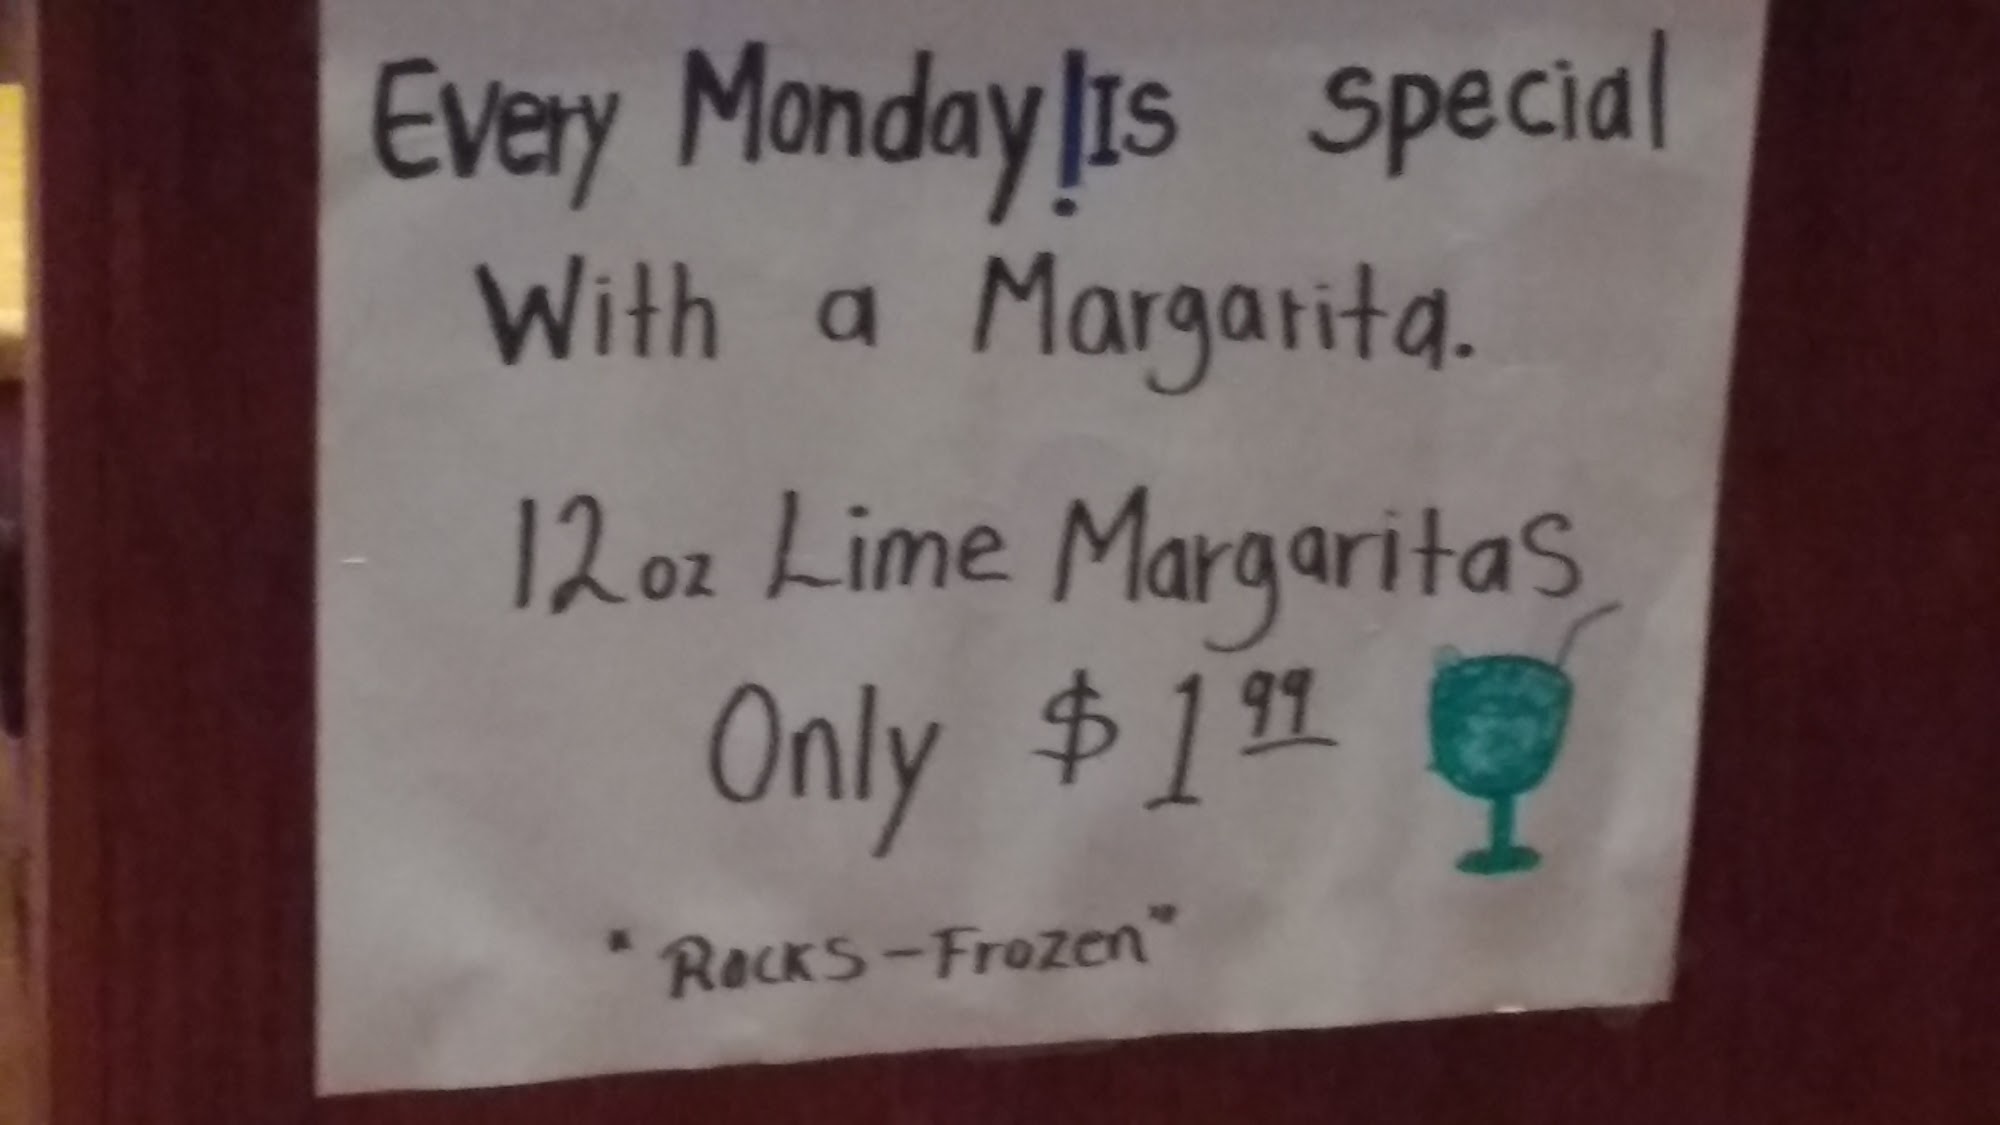 Every Monday! Is special
With a Margarita.
12oz Lime Margaritas
Only $1 99
"Rocks-Frozen"